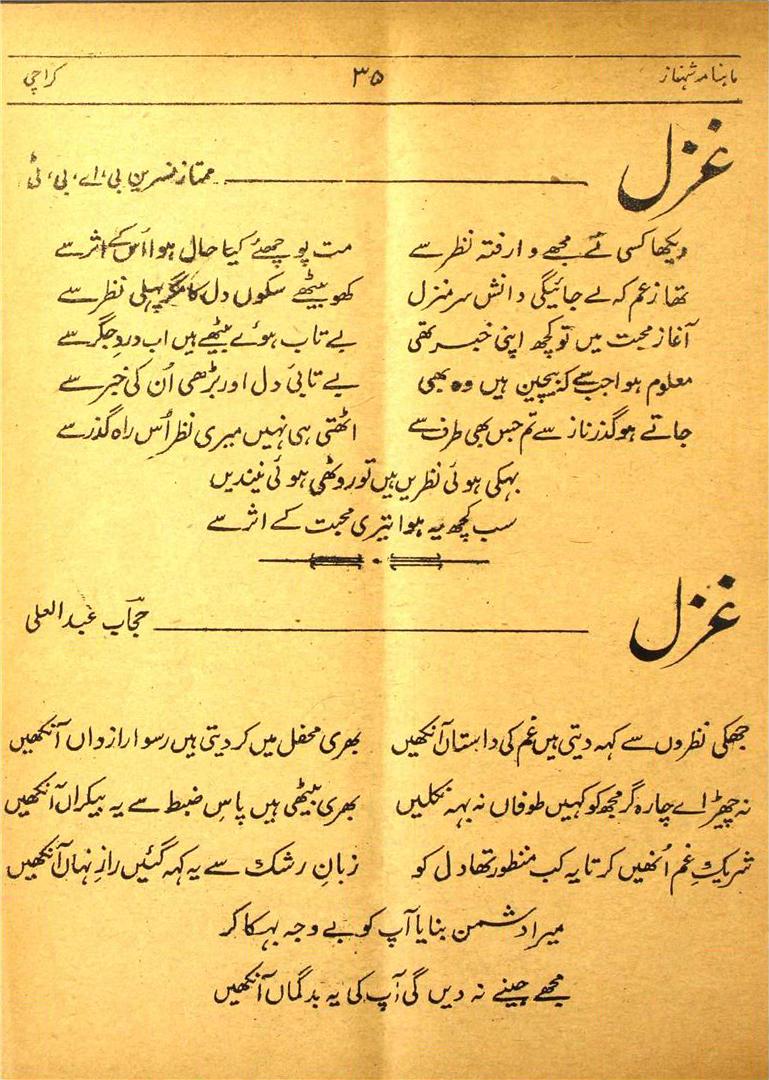 ماہنامہ شہناز ۳۵ کراچی
غزل
ممتاز نسرین بی، اے، بی، ٹی
دیکھا کسی نے مجھے وارفتہ نظر سے مت پوچھئے کیا حال ہوا اُس کے اثر سے
تھا زعم کہ لے جائیگی دانش سرِ منزل کھو بیٹھے سکوں دل کا مگر پہلی نظر سے
آغازِ محبت میں تو کچھ اپنی خبر تھی بے تاب ہوئے بیٹھے ہیں اب دردِ جگر سے
معلوم ہوا جب سے کہ بیچین ہیں وہ بھی بے تابیٔ دل اور بڑھی اُن کی خبر سے
جاتے ہو گذر ناز سے تم جس بھی طرف سے اٹھتی ہی نہیں میری نظر اُس راہ گذر سے
بہکی ہوئی نظریں ہیں تو روٹھی ہوئی نیندیں
سب کچھ یہ ہوا تیری محبت کے اثر سے
غزل
حجاب عبد العلی
جھکی نظروں سے کہہ دیتی ہیں غم کی داستاں آنکھیں بھری محفل میں کر دیتی ہیں رسوا رازداں آنکھیں
نہ چھیڑ اے چارہ گر مجھ کو کہیں طوفاں نہ بہہ نکلیں بھری بیٹھی ہیں پاسِ ضبط سے یہ بیکراں آنکھیں
شریکِ غم اُنھیں کرتا یہ کب منظور تھا دل کو زبانِ رشک سے یہ کہہ گئیں رازِ نہاں آنکھیں
میرا دشمن بنایا آپ کو بے وجہ بہکا کر
مجھے جینے نہ دیں گی آپ کی یہ بدگماں آنکھیں